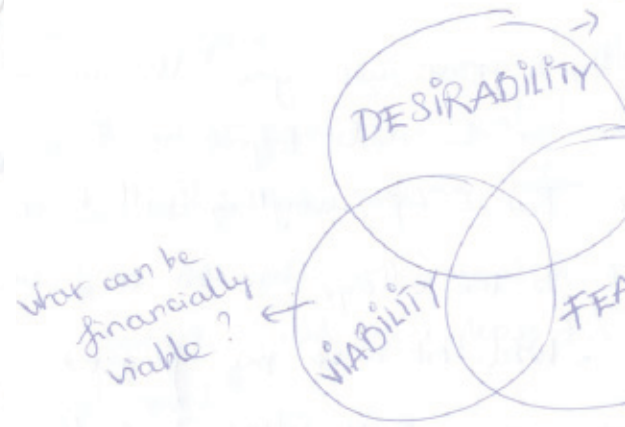 DESIRABILITY
what can be
financially
viable?
VIABILITY
FEA